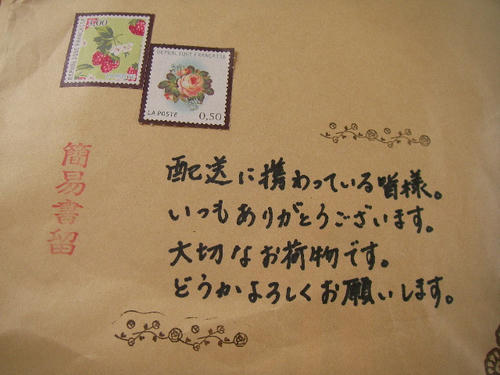 REPUBLIQUE FRANÇAISE
LA POSTE 0,50
簡易書留
配送に携わっている皆様。
いつもありがとうございます。
大切なお荷物です。
どうかよろしくお願いします。